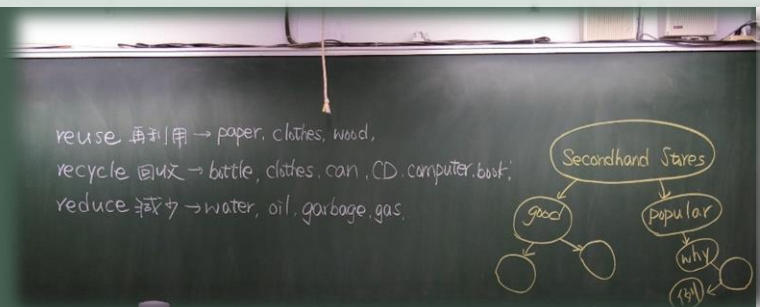 reuse 再利用 → paper, clothes, wood,
recycle 回收 → bottle, clothes, can, CD. computer. book,
reduce 減少 → water, oil, garbage, gas,
Secondhand Stores
good
popular
why
例